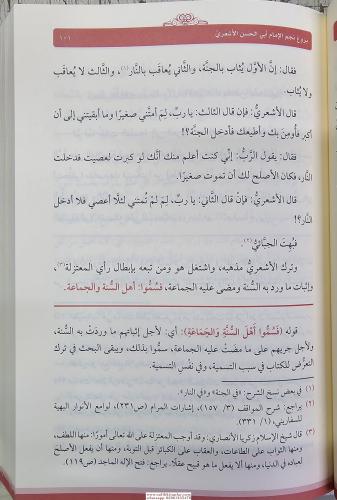 بزوغ نجم الإمام أبي الحسن الأشعري
١٠١
فقال: إنَّ الأوَّل يُثاب بالجنَّة، والثاني يُعاقَب بالنَّار(١)، والثالث لا يُعاقَب
ولا يُثاب.
قال الأشعريُّ: فإن قال الثالث: يا ربِّ، لمَ أمتَّني صغيرًا وما أبقيتني إلى أن
أكبر فأُومِنَ بك وأطيعك فأدخل الجنة؟!
فقال: يقول الرَّبُّ: إنِّي كنت أعلم منك أنَّك لو كبرت لعصيت فدخلت
النَّار، فكان الأصلح لك أن تموت صغيرًا.
قال الأشعريُّ: فإن قال الثَّاني: يا ربِّ، لمَ لمْ تُمتني لئلَّا أعصي فلا أدخل
النَّار؟!
فبُهتَ الجبَّائيُّ(٢).
وترك الأشعريُّ مذهبه، واشتغل هو ومن تبعه بإبطال رأي المعتزلة(٣)،
وإثبات ما ورد به السُّنة ومضى عليه الجماعة، فسُمُّوا: أهل السُّنة والجماعة.
قوله (فَسُمُّوا أَهْلَ السُّنَّةِ وَالجَمَاعَةِ): أي: لأجل إثباتهم ما وردَتْ به السُّنة،
ولأجل جريهم على ما مضَتْ عليه الجماعة، سمُّوا بذلك، ويبقى البحث في ترك
التعرُّض للكتاب في سبب التسمية، وفي نفْس التسمية.
(١) في بعض نسخ الشرح: «في الجنة» و«في النار».
(٢) يراجع: شرح المواقف (٣/ ١٥٧)، إشارات المرام (ص٢٣١)، لوامع الأنوار البهية
للسفاريني (١/ ٣٣١).
(٣) قال شيخ الإسلام زكريا الأنصاري: وقد أوجب المعتزلة على الله تعالى أمورًا: منها اللطف،
ومنها الثواب على الطاعات، والعقاب على الكبائر قبل التوبة، ومنها أن يفعل الأصلح
لعباده في الدنيا، ومنها ألا يفعل ما هو قبيح عقلًا. يراجع: فتح الإله الماجد (ص١١٩).